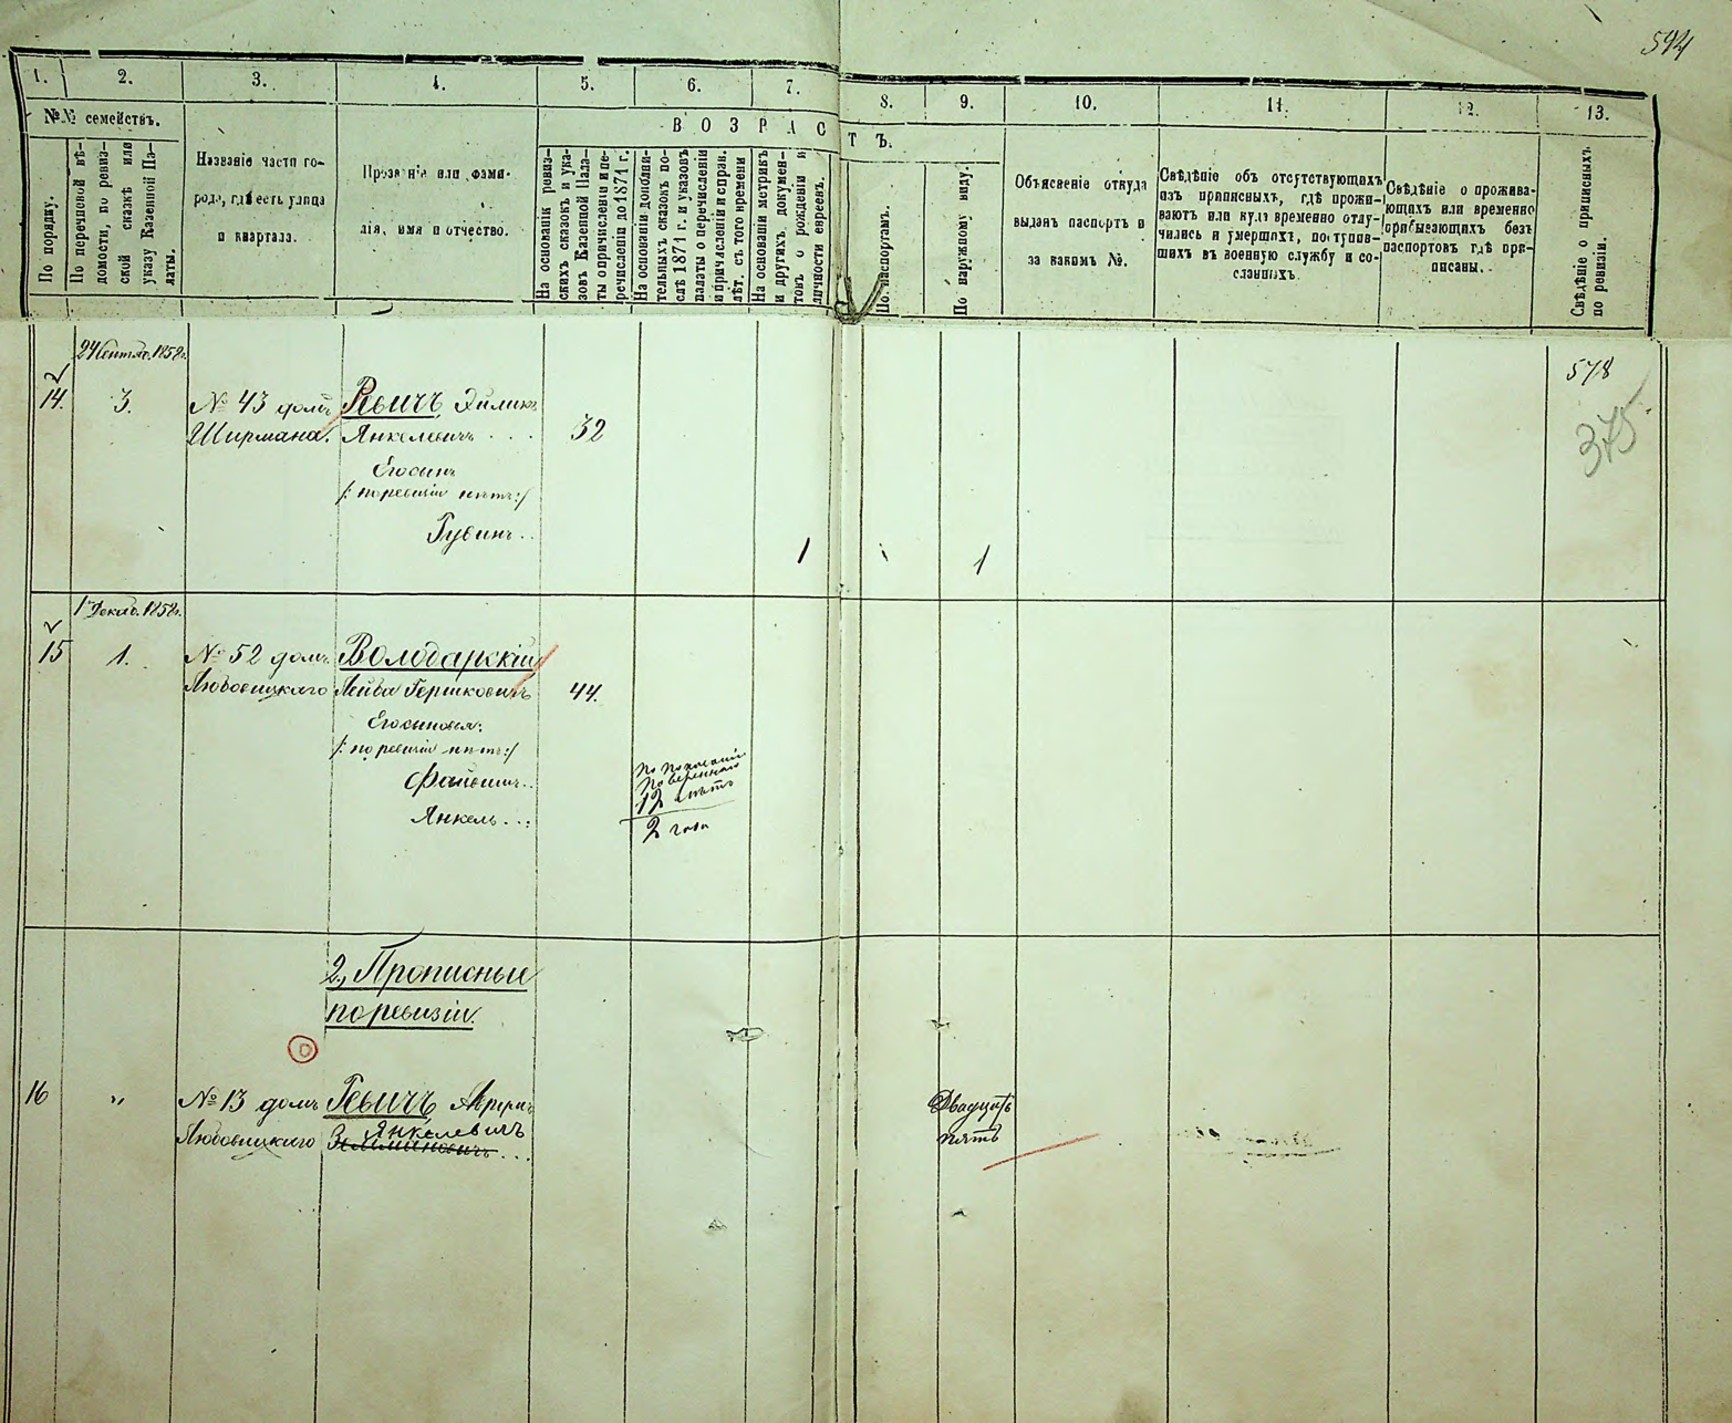 594
1. 2. 3. 4. 5. 6. 7. 8. 9. 10. 11. 12. 13.
№№ семействъ.
В О З Р А С Т Ъ.
По порядку.
По перечневой вѣ-
домости, по ревиз-
ской сказкѣ или
указу Казенной Па-
латы.
Названіе части го-
рода, гдѣ есть улица
и квартала.
Прозваніе или фами-
лія, имя и отчество.
На основаніи ревиз-
скихъ сказокъ и ука-
зовъ Казенной Пала-
ты о причисленіи и пе-
речисленіи до 1871 г.
На основаніи дополни-
тельныхъ сказокъ по-
слѣ 1871 г. и указовъ
палаты о перечисленіи
и причисленіи и справ.
лѣт. съ того времени
На основаніи метрикъ
и другихъ докумен-
товъ о рожденіи и
личности евреевъ.
По паспортамъ.
По наружному виду.
Объясненіе откуда
выданъ паспортъ и
за какимъ №.
Свѣдѣніе объ отсутствующихъ
изъ приписныхъ, гдѣ прожи-
ваютъ или куда временно отлу-
чились и умершихъ, поступив-
шихъ въ военную службу и со-
сланныхъ.
Свѣдѣніе о прожива-
ющихъ или временно
прибывающихъ безъ
паспортовъ гдѣ при-
писаны.
Свѣдѣніе о приписныхъ
по ревизіи.
24 Сентяб. 1858 г.
578
14. 3. № 43 домъ Ревичъ Эйликъ
375
Ширмана. Янкелевичъ . . . 32
Его сынъ
/: по ревизіи нѣтъ :/
Рувинъ . . 1 1
1 Декаб. 1858 г.
15 1. № 52 домъ Володарскій
Любовицкаго Лейба Гершковичъ 44.
Его сыновья:
/: по ревизіи нѣтъ :/
По показанію
повѣреннаго
Файвишъ . . 12 лѣтъ
Янкель . . : 2 года
2, Прописные
по ревизіи.
16 " № 13 домъ Ревичъ Двадцать
Янкелевичъ
Любовицкаго . . . пять